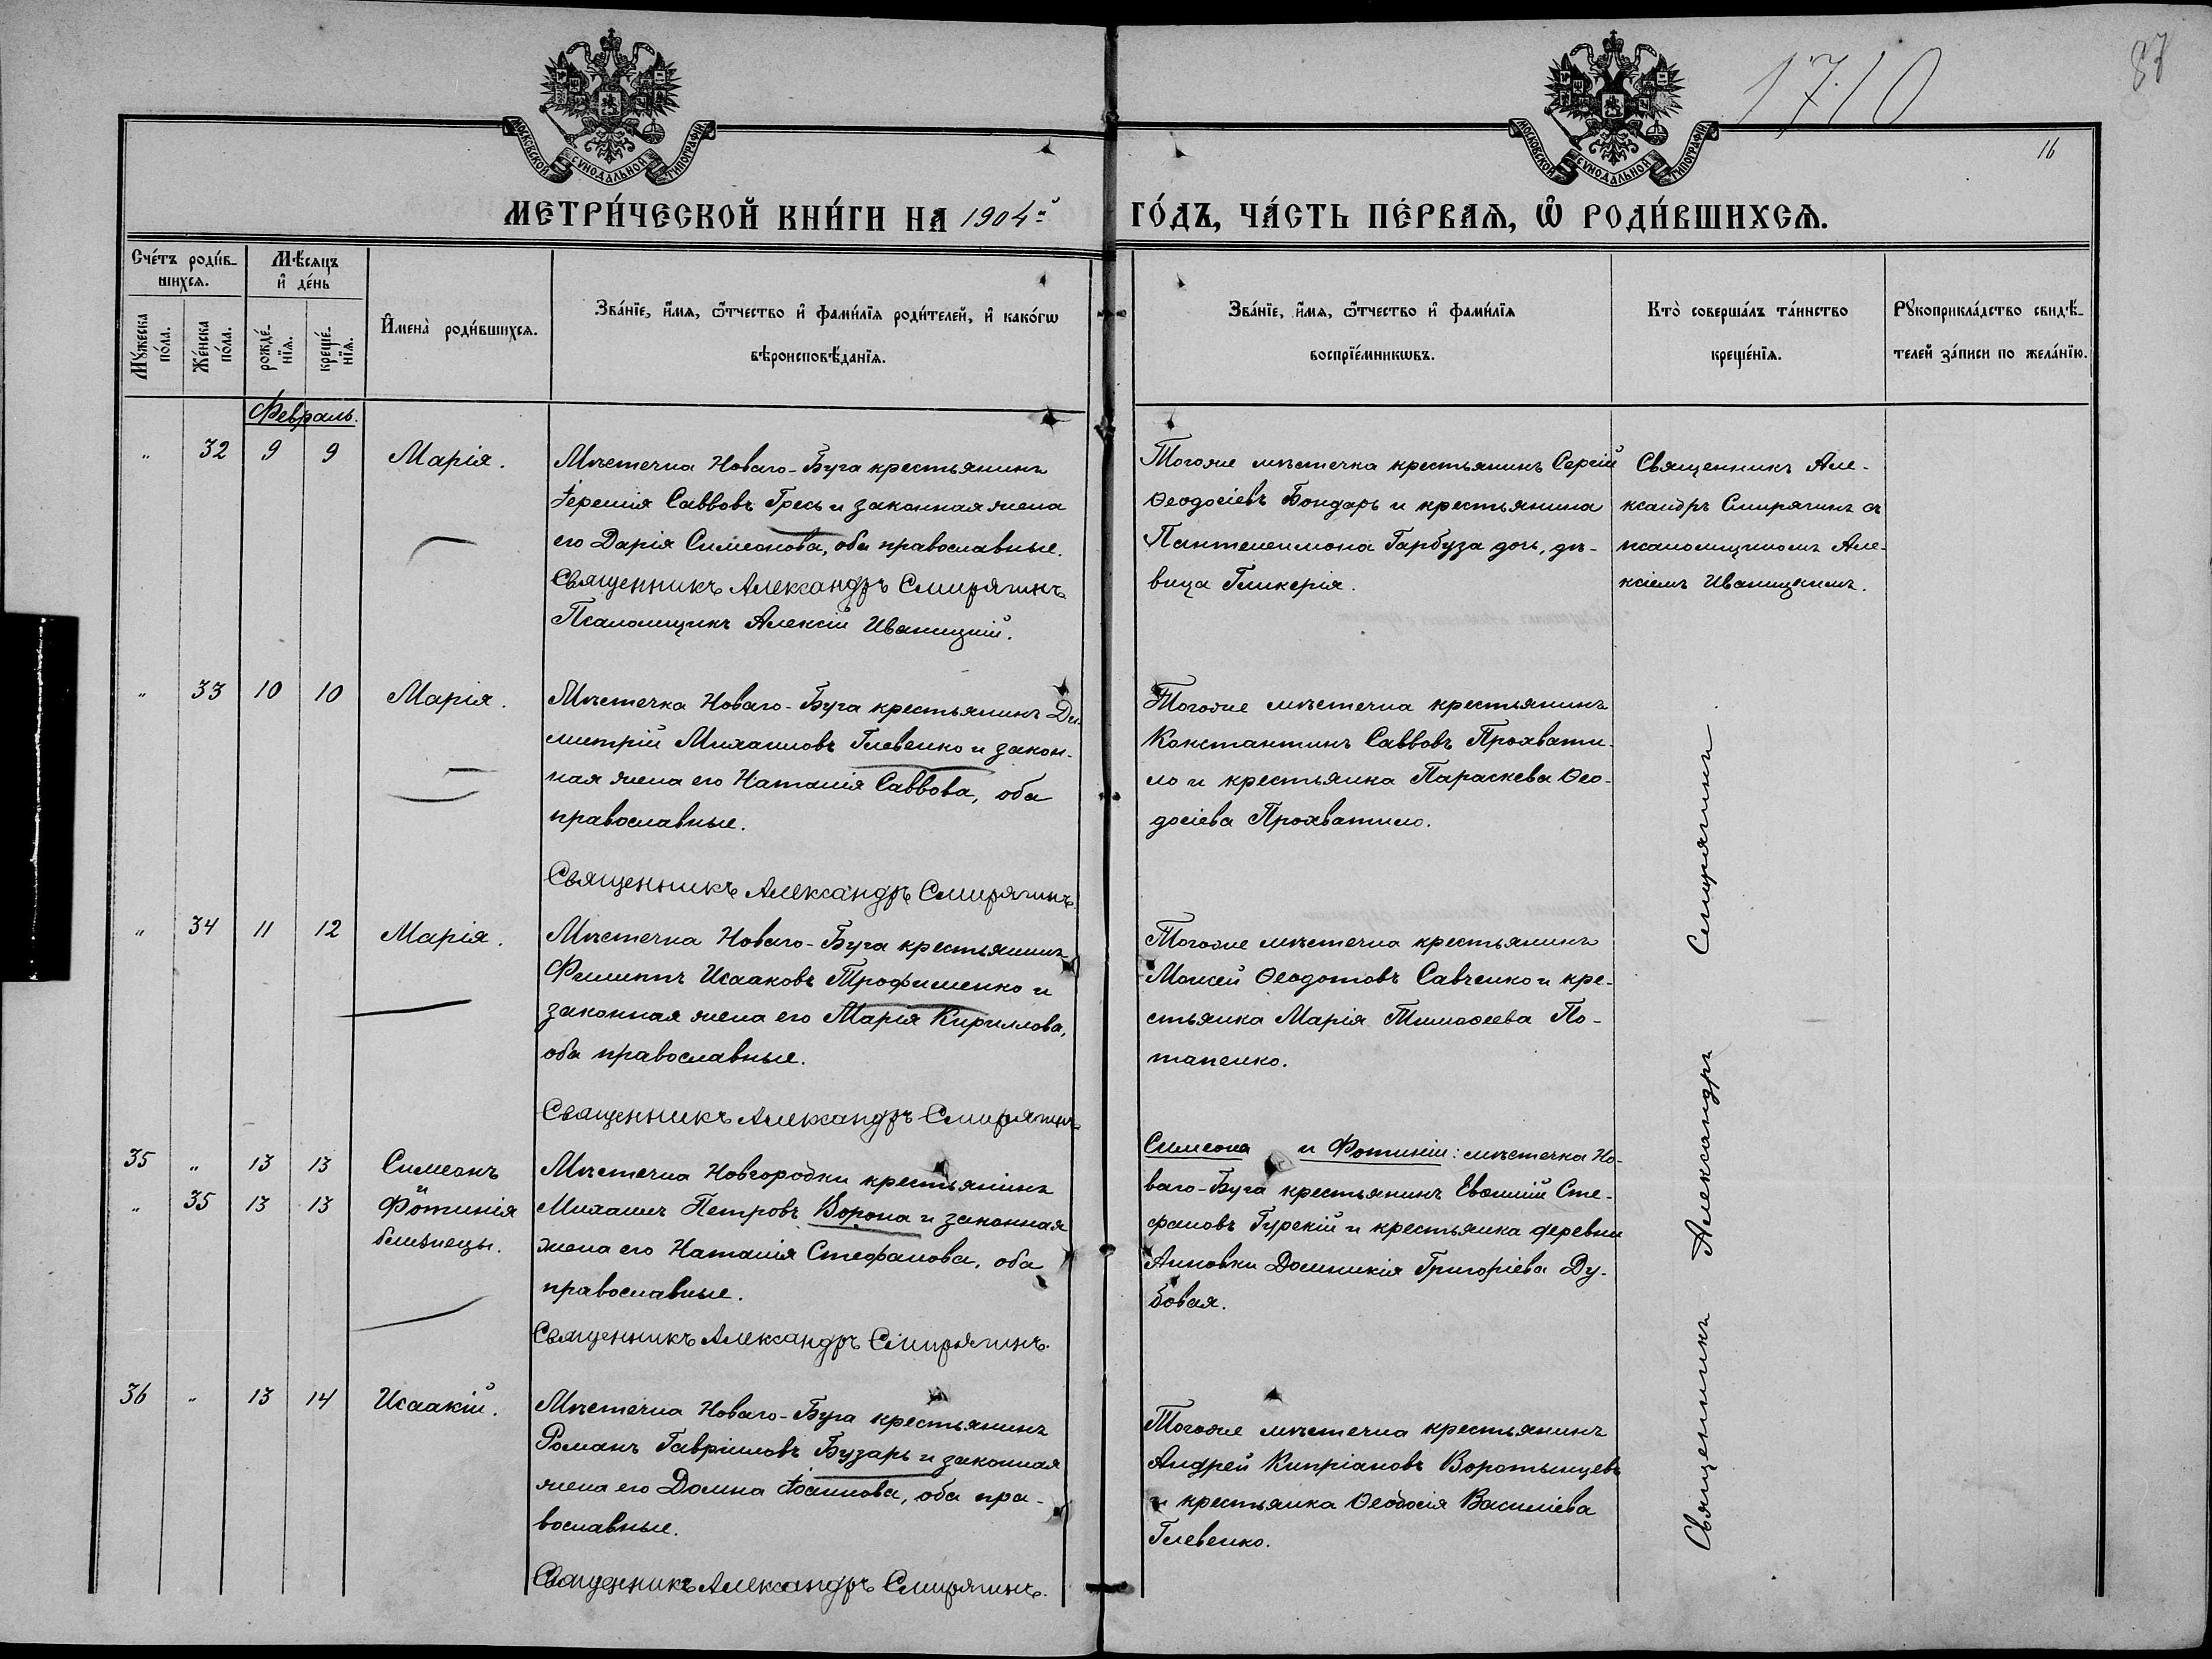 1710
87
16
МОСКОВСКОЙ СѴНОДАЛЬНОЙ ТИПОГРАФІИ
МОСКОВСКОЙ СѴНОДАЛЬНОЙ ТИПОГРАФІИ
МЕТРИ́ЧЕСКОЙ КНИ́ГИ НА 1904й ГО́ДЪ, ЧА́СТЬ ПЕ́РВАѦ, Ѽ РОДИ́ВШИХСѦ.
Сче́тъ роди́в-
шихсѧ.
Мꙋ́жеска
по́ла.
Же́нска
по́ла.
Мѣ́сѧцъ
и҆ де́нь
рожде́-
нїѧ.
креще́-
нїѧ.
И҆мена̀ роди́вшихсѧ.
Зва́нїе, и҆́мѧ, ѻ҆́тчество и҆ фами́лїѧ роди́телей, и҆ како́гѡ
вѣроисповѣ́данїѧ.
Зва́нїе, и҆́мѧ, ѻ҆́тчество и҆ фами́лїѧ
воспрїе́мникѡвъ.
Кто̀ соверша́лъ та́инство
креще́нїѧ.
Рꙋкоприкла́дство свидѣ́-
телей за́писи по жела́нїю.
Февраль.
" 32 9 9 Марія.
Мѣстечка Новаго-Буга крестьянинъ
Іеремія Саввовъ Гресь и законная жена
его Дарія Симеонова, оба православные.
Священникъ Александръ Смирягинъ
Псаломщикъ Алексій Иваницкій.
Тогоже мѣстечка крестьянинъ Сергій
Ѳеодосіевъ Бондарь и крестьянина
Пантелеимона Гарбуза дочь, дѣ-
вица Гликерія.
Священникъ Але-
ксандръ Смирягинъ съ
псаломщикомъ Але-
ксіемъ Иваницкимъ.
" 33 10 10 Марія.
Мѣстечка Новаго-Буга крестьянинъ Ди-
митрій Михаиловъ Глевенко и закон-
ная жена его Наталія Саввова, оба
православные.
Священникъ Александръ Смирягинъ.
Тогоже мѣстечка крестьянинъ
Константинъ Саввовъ Прохвати-
ло и крестьянка Параскева Ѳео-
досіева Прохватило.
" 34 11 12 Марія.
Мѣстечка Новаго-Буга крестьянинъ
Филиппъ Исааковъ Трофименко и
законная жена его Марія Кириллова,
оба православные.
Священникъ Александръ Смирягинъ
Тогоже мѣстечка крестьянинъ
Моисей Ѳеодотовъ Савченко и кре-
стьянка Марія Тимоѳеева По-
тапенко.
35 " 13 13 Симеонъ
и
" 35 13 13 Фотинія
близнецы.
Мѣстечка Новгородки крестьянинъ
Михаилъ Петровъ Ворона и законная
жена его Наталія Стефанова, оба
православные.
Священникъ Александръ Смирягинъ.
Симеона и Фотиніи: мѣстечка Но-
ваго-Буга крестьянинъ Евѳимій Сте-
фановъ Гурскій и крестьянка деревни
Анновки Домникія Григоріева Ду-
бовая.
36 " 13 14 Исаакій.
Мѣстечка Новаго-Буга крестьянинъ
Романъ Гавріиловъ Бузарь и законная
жена его Домна Іоаннова, оба пра-
вославные.
Священникъ Александръ Смирягинъ.
Тогоже мѣстечка крестьянинъ
Андрей Кипріановъ Воротынцевъ
и крестьянка Ѳеодосія Василіева
Глевенко.
Священникъ Александръ Смирягинъ.